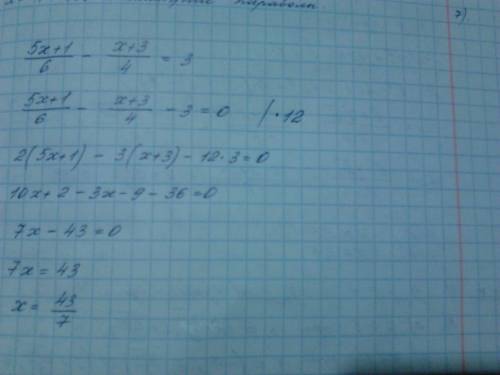 параболы
7)
(5x+1)/6 - (x+3)/4 = 3
(5x+1)/6 - (x+3)/4 - 3 = 0 /·12
2(5x+1) - 3(x+3) - 12·3=0
10x+2-3x-9-36=0
7x-43=0
7x=43
x= 43/7